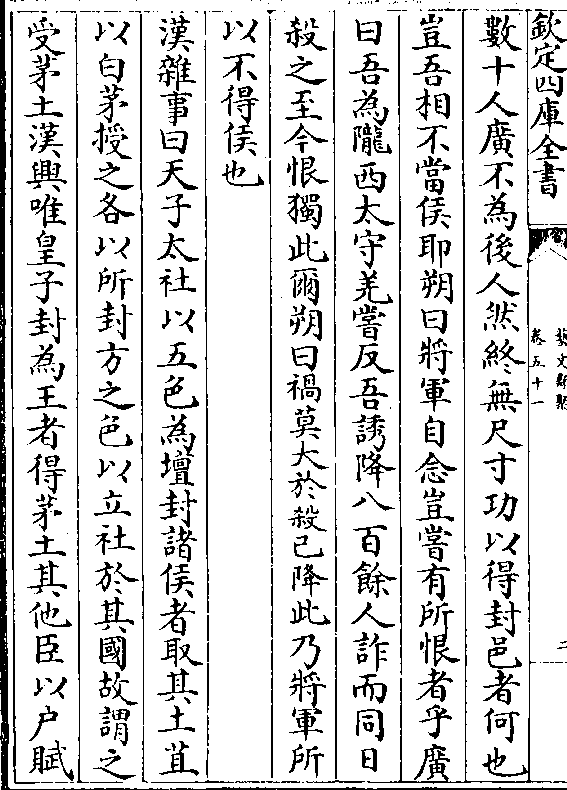 欽定四庫全書
藝文類聚
卷五十一
二
數十人廣不為後人然終無尺寸功以得封邑者何也
豈吾相不當侯耶朔曰將軍自念豈嘗有所恨者乎廣
曰吾為隴西太守羌嘗反吾誘降八百餘人詐而同日
殺之至今恨獨此爾朔曰禍莫大於殺已降此乃將軍所
以不得侯也
漢雜事曰天子太社以五色為壇封諸侯者取其土苴
以白茅授之各以所封方之色以立社於其國故謂之
受茅土漢興唯皇子封為王者得茅土其他臣以户賦